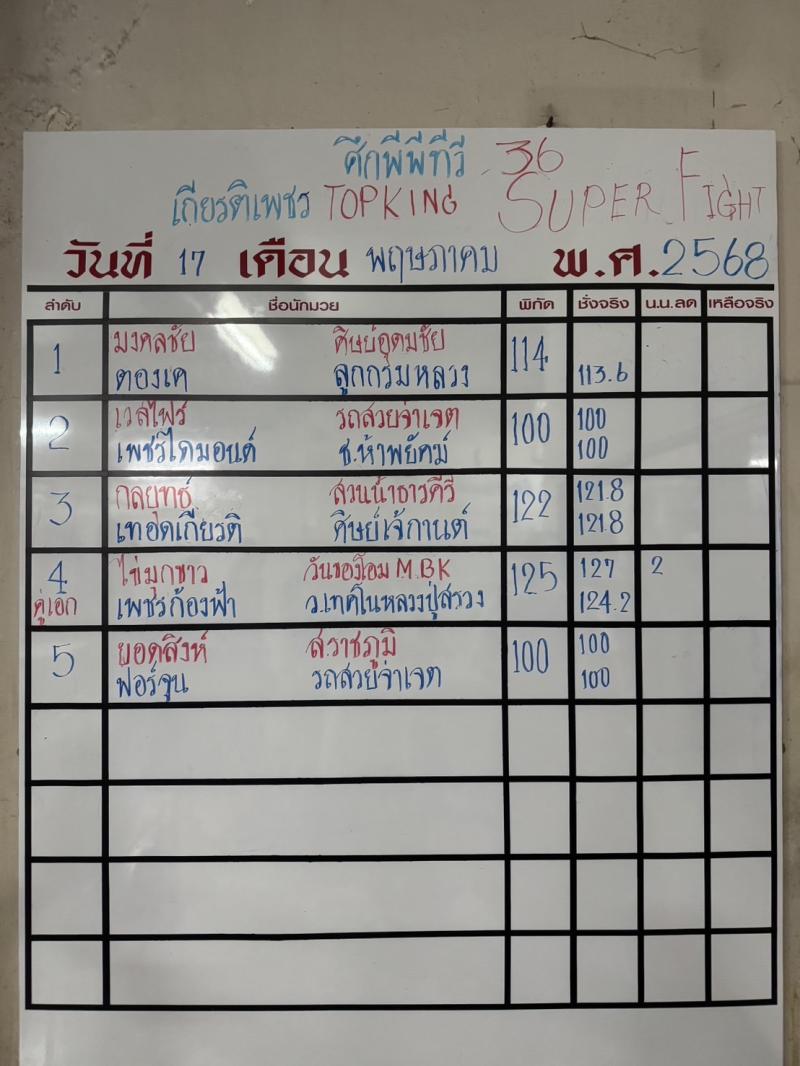 ศึกพีพีทีวี 36
เกียรติเพชร TOPKING SUPER FIGHT
วันที่ 17 เดือน พฤษภาคม พ.ศ. 2568
ลำดับ ชื่อนักมวย พิกัด ชั่งจริง น.น.ลด เหลือจริง
1 มงคลชัย ศิษย์อุดมชัย 114
ตองเค ลูกกรมหลวง 113.6
2 เวสไฟร์ รถสวยจ่าเจต 100 100
เพชรไดมอนด์ ช.ห้าพยัคฆ์ 100
3 กลยุทธ์ สวนน้ำธารคีรี 122 121.8
เทอดเกียรติ ศิษย์เจ้กานต์ 121.8
4 ไข่มุกขาว วันของโอม M.BK 125 127 2
คู่เอก เพชรก้องฟ้า ว.เทศโนหลวงปู่สรวง 124.2
5 ยอดสิงห์ ส.ราชภูมิ 100 100
ฟอร์จูน รถสวยจ่าเจต 100